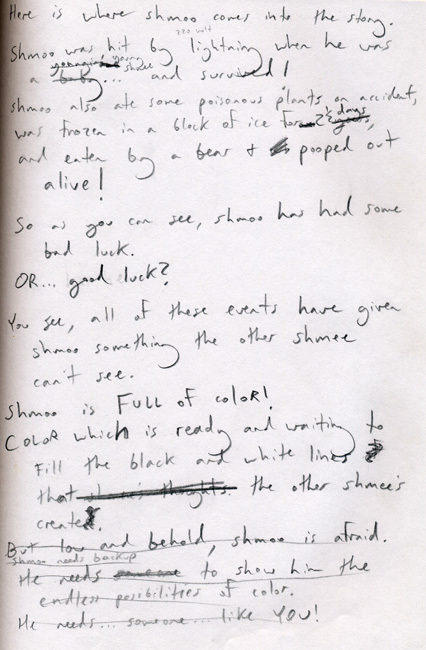 Here is where shmoo comes into the story.
220 volt
Shmoo was hit by lightning when he was
young
shmee
a baby... and survived!
shmoo also ate some poisonous plants, on accident,
days
was frozen in a block of ice for 2½ years,
and eaten by a bear & pooped out
alive!
So as you can see, shmoo has had some
bad luck.
OR... good luck?
You see, all of these events have given
shmoo something the other shmee
can't see.
Shmoo is FULL OF COLOR!
COLOR which is ready and waiting to
Fill the black and white lines
that the other shmee's
create.
But low and behold, shmoo is afraid.
shmoo needs backup
He needs someone to show him the
endless possibilities of color.
He needs... someone... like YOU!